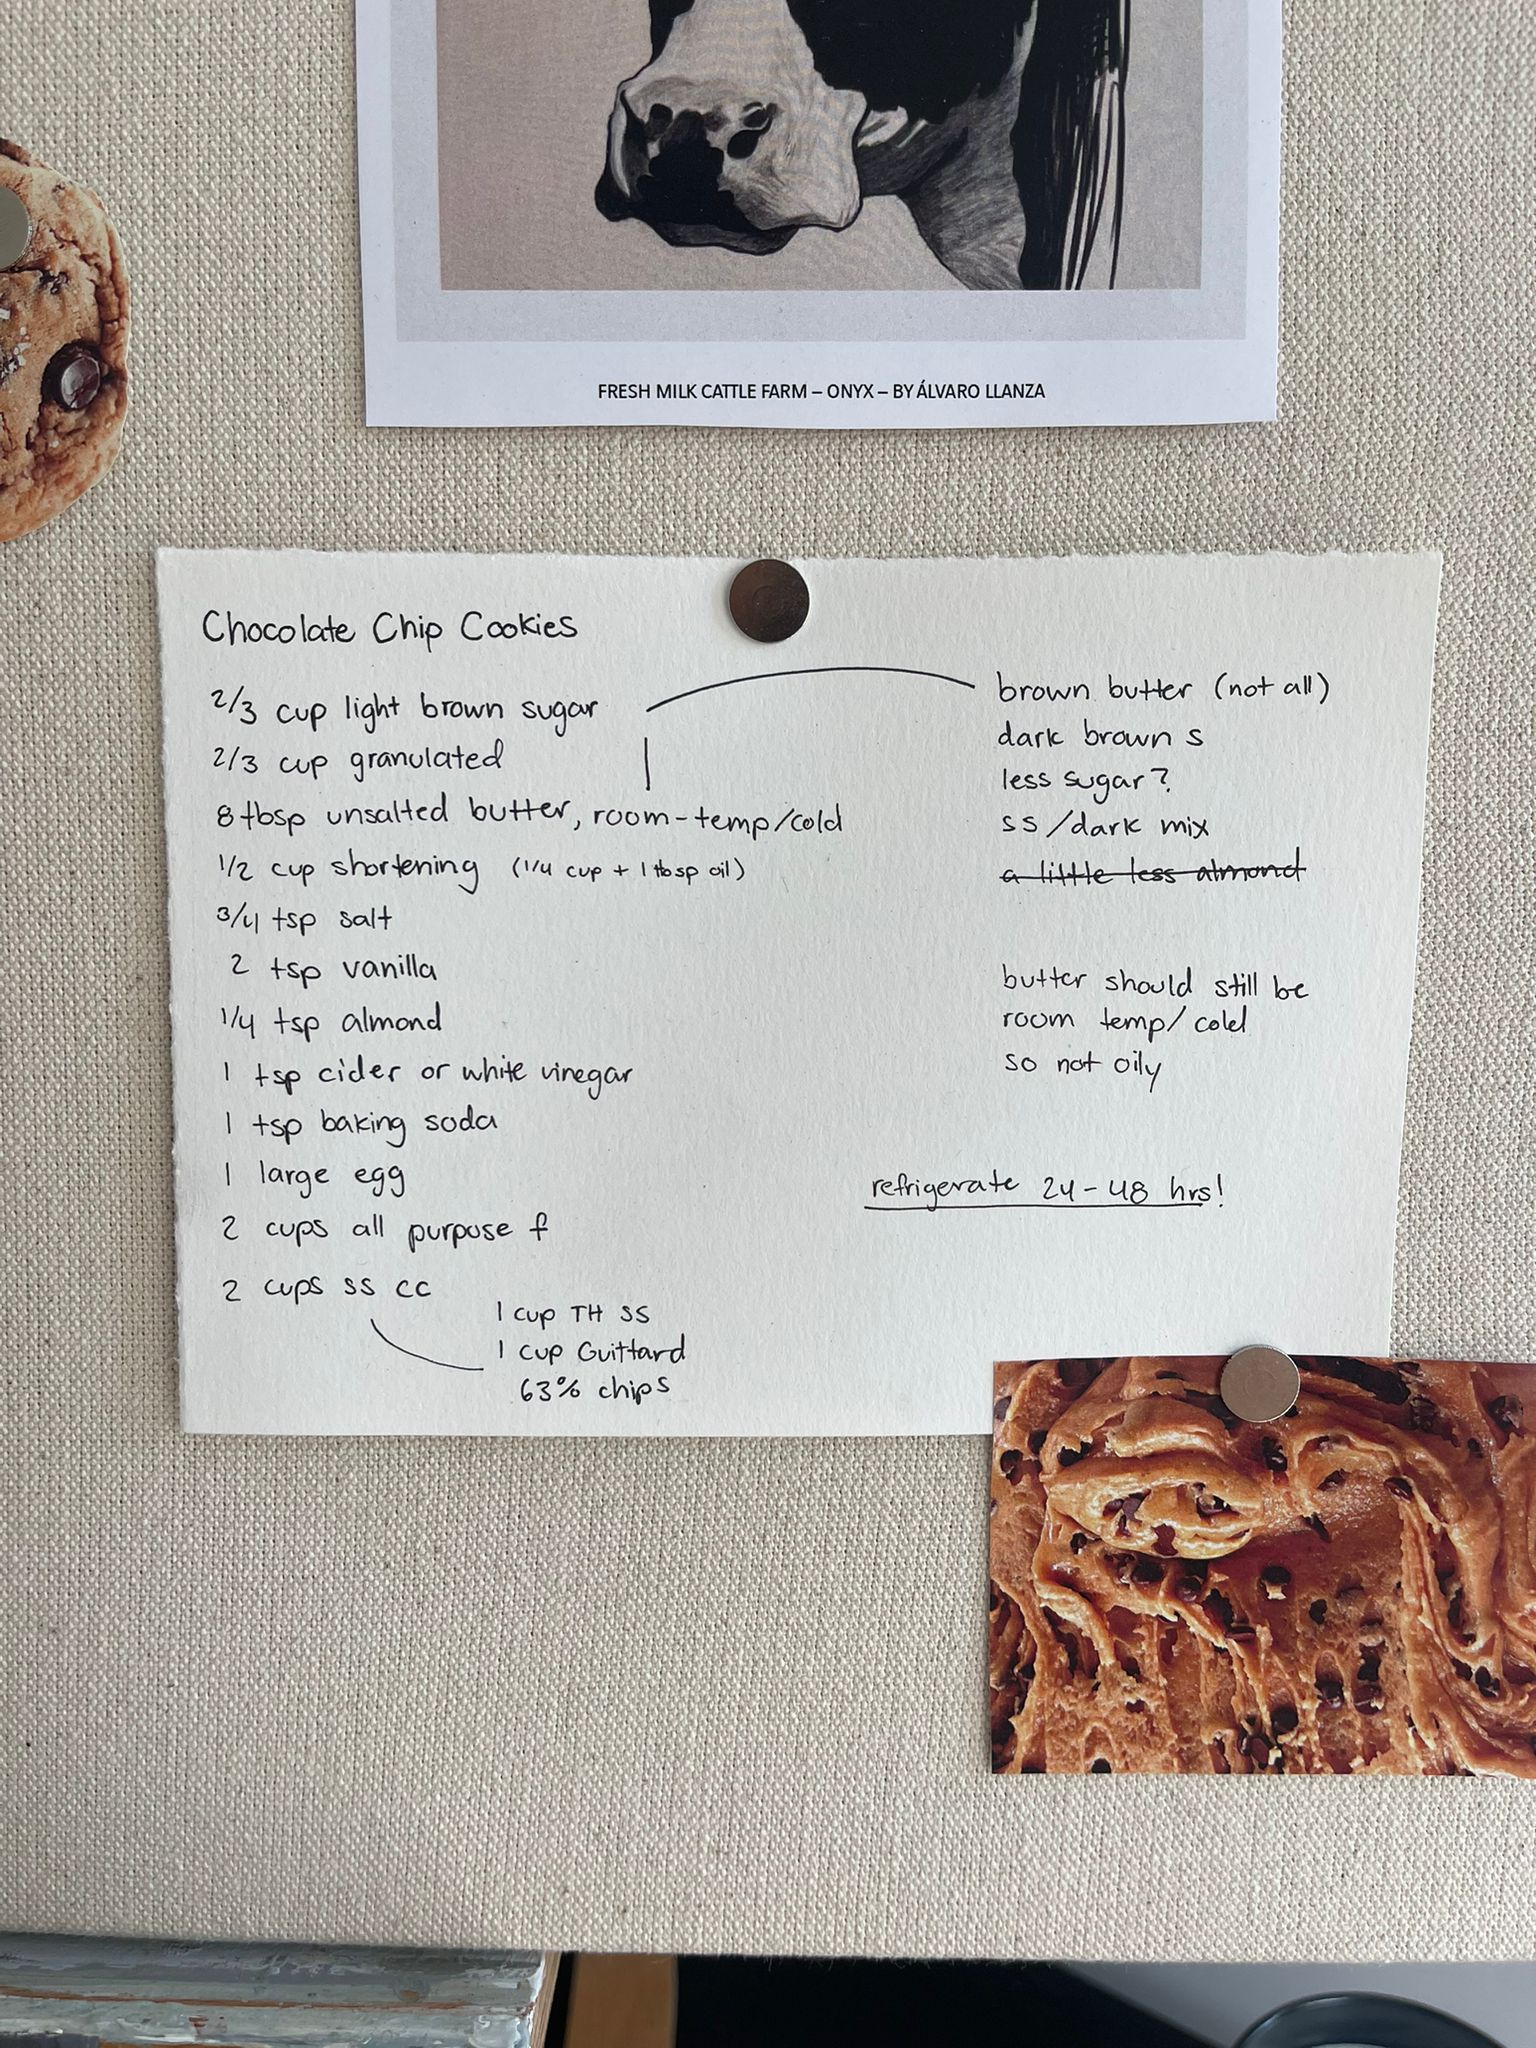 FRESH MILK CATTLE FARM – ONYX – BY ÁLVARO LLANZA
Chocolate Chip Cookies
2/3 cup light brown sugar
2/3 cup granulated
8 tbsp unsalted butter, room-temp/cold
1/2 cup shortening (1/4 cup + 1 tbsp oil)
3/4 tsp salt
2 tsp vanilla
1/4 tsp almond
1 tsp cider or white vinegar
1 tsp baking soda
1 large egg
2 cups all purpose f
2 cups ss cc
1 cup TH SS
1 cup Guittard
63% chips
brown butter (not all)
dark brown s
less sugar?
ss/dark mix
a little less almond
butter should still be
room temp/cold
so not oily
refrigerate 24-48 hrs!